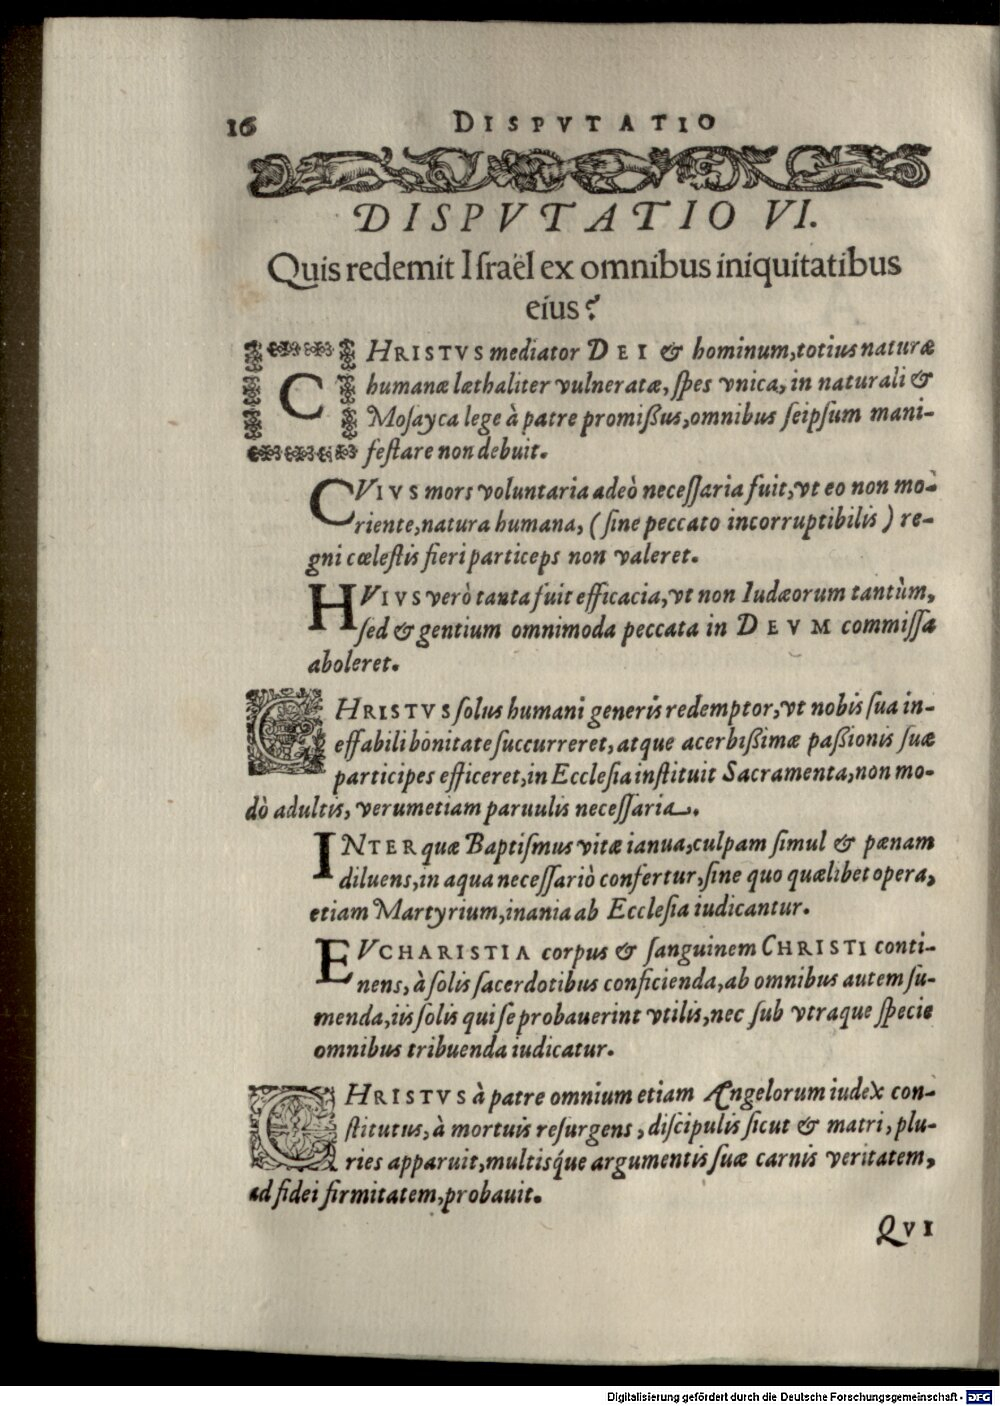 16 DISPVTATIO
DISPVTATIO VI.
Quis redemit Iſraël ex omnibus iniquitatibus
eius?
CHRISTVS mediator DEI & hominum, totius naturæ
humanæ læthaliter vulneratæ, ſpes vnica, in naturali &
Moſayca lege à patre promißus, omnibus ſeipſum mani-
feſtare non debuit.
CVIVS mors voluntaria adeò neceſſaria fuit, vt eo non mo-
riente, natura humana, (ſine peccato incorruptibilis) re-
gni cœleſtis fieri particeps non valeret.
HVIVS verò tanta fuit efficacia, vt non Iudæorum tantùm,
ſed & gentium omnimoda peccata in DEVM commiſſa
aboleret.
CHRISTVS ſolus humani generis redemptor, vt nobis ſua in-
effabili bonitate ſuccurreret, atque acerbißimæ paßionis ſuæ
participes efficeret, in Eccleſia inſtituit Sacramenta, non mo-
dò adultis, verumetiam paruulis neceſſaria.
INTER quæ Baptiſmus vitæ ianua, culpam ſimul & pænam
diluens, in aqua neceſſariò confertur, ſine quo quælibet opera,
etiam Martyrium, inania ab Eccleſia iudicantur.
EVCHARISTIA corpus & ſanguinem CHRISTI conti-
nens, à ſolis ſacerdotibus conficienda, ab omnibus autem ſu-
menda, iis ſolis qui ſe probauerint vtilis, nec ſub vtraque ſpecie
omnibus tribuenda iudicatur.
CHRISTVS à patre omnium etiam Angelorum iudex con-
ſtitutus, à mortuis reſurgens, diſcipulis ſicut & matri, plu-
ries apparuit, multisq́ue argumentis ſuæ carnis veritatem,
ad fidei firmitatem, probauit.
QVI
Digitalisierung gefördert durch die Deutsche Forschungsgemeinschaft - DFG